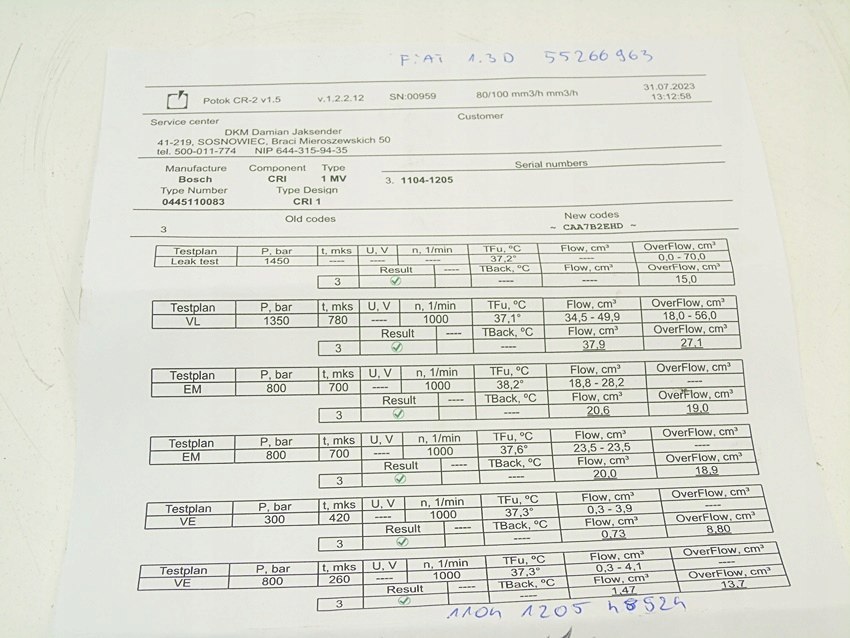 FiAT 1.3D 55266963
Potok CR-2 v1.5 v.1.2.2.12 SN:00959 80/100 mm3/h mm3/h 31.07.2023
13:12:58
Service center Customer
DKM Damian Jaksender
41-219, SOSNOWIEC, Braci Mieroszewskich 50
tel. 500-011-774 NIP 644-315-94-35
Manufacture Component Type Serial numbers
Bosch CRI 1 MV 3. 1104-1205
Type Number Type Design
0445110083 CRI 1
Old codes New codes
3 ~ CAA7B2EHD ~
Testplan P, bar t, mks U, V n, 1/min TFu, ºC Flow, cm³ OverFlow, cm³
Leak test 1450 ---- ---- ---- 37,2° ---- 0,0 - 70,0
Result ---- TBack, ºC Flow, cm³ OverFlow, cm³
3 ---- ---- 15,0
Testplan P, bar t, mks U, V n, 1/min TFu, ºC Flow, cm³ OverFlow, cm³
VL 1350 780 ---- 1000 37,1° 34,5 - 49,9 18,0 - 56,0
Result ---- TBack, ºC Flow, cm³ OverFlow, cm³
3 ---- 37,9 27,1
Testplan P, bar t, mks U, V n, 1/min TFu, ºC Flow, cm³ OverFlow, cm³
EM 800 700 ---- 1000 38,2° 18,8 - 28,2 ----
Result ---- TBack, ºC Flow, cm³ OverFlow, cm³
3 ---- 20,6 19,0
Testplan P, bar t, mks U, V n, 1/min TFu, ºC Flow, cm³ OverFlow, cm³
EM 800 700 ---- 1000 37,6° 23,5 - 23,5 ----
Result ---- TBack, ºC Flow, cm³ OverFlow, cm³
3 ---- 20,0 18,9
Testplan P, bar t, mks U, V n, 1/min TFu, ºC Flow, cm³ OverFlow, cm³
VE 300 420 ---- 1000 37,3° 0,3 - 3,9 ----
Result ---- TBack, ºC Flow, cm³ OverFlow, cm³
3 ---- 0,73 8,80
Testplan P, bar t, mks U, V n, 1/min TFu, ºC Flow, cm³ OverFlow, cm³
VE 800 260 ---- 1000 37,3° 0,3 - 4,1 ----
Result ---- TBack, ºC Flow, cm³ OverFlow, cm³
3 ---- 1,47 13,7
1104 1205 48524